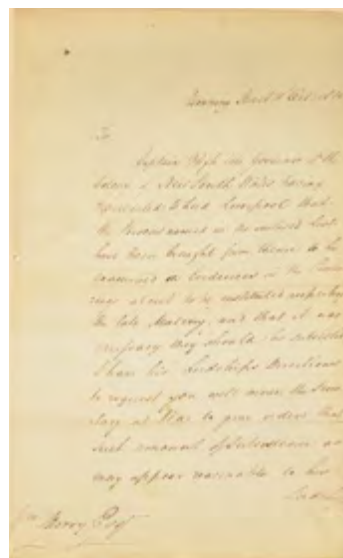 Downing Street
Sir
Captain Bligh late Governor of the
Colony of New South Wales having
represented to Lord Liverpool that
the Persons named in the enclosed List
have been brought from thence to be
examined as Evidences in the
about to be instituted respecting
the late Mutiny, and that it was
necessary they should be subsisted
I have his Lordships Directions
to request you will move the Secre
tary at War to give orders that
such amount of Subsistence as
may appear reasonable to his
Lord
Merry Esqr